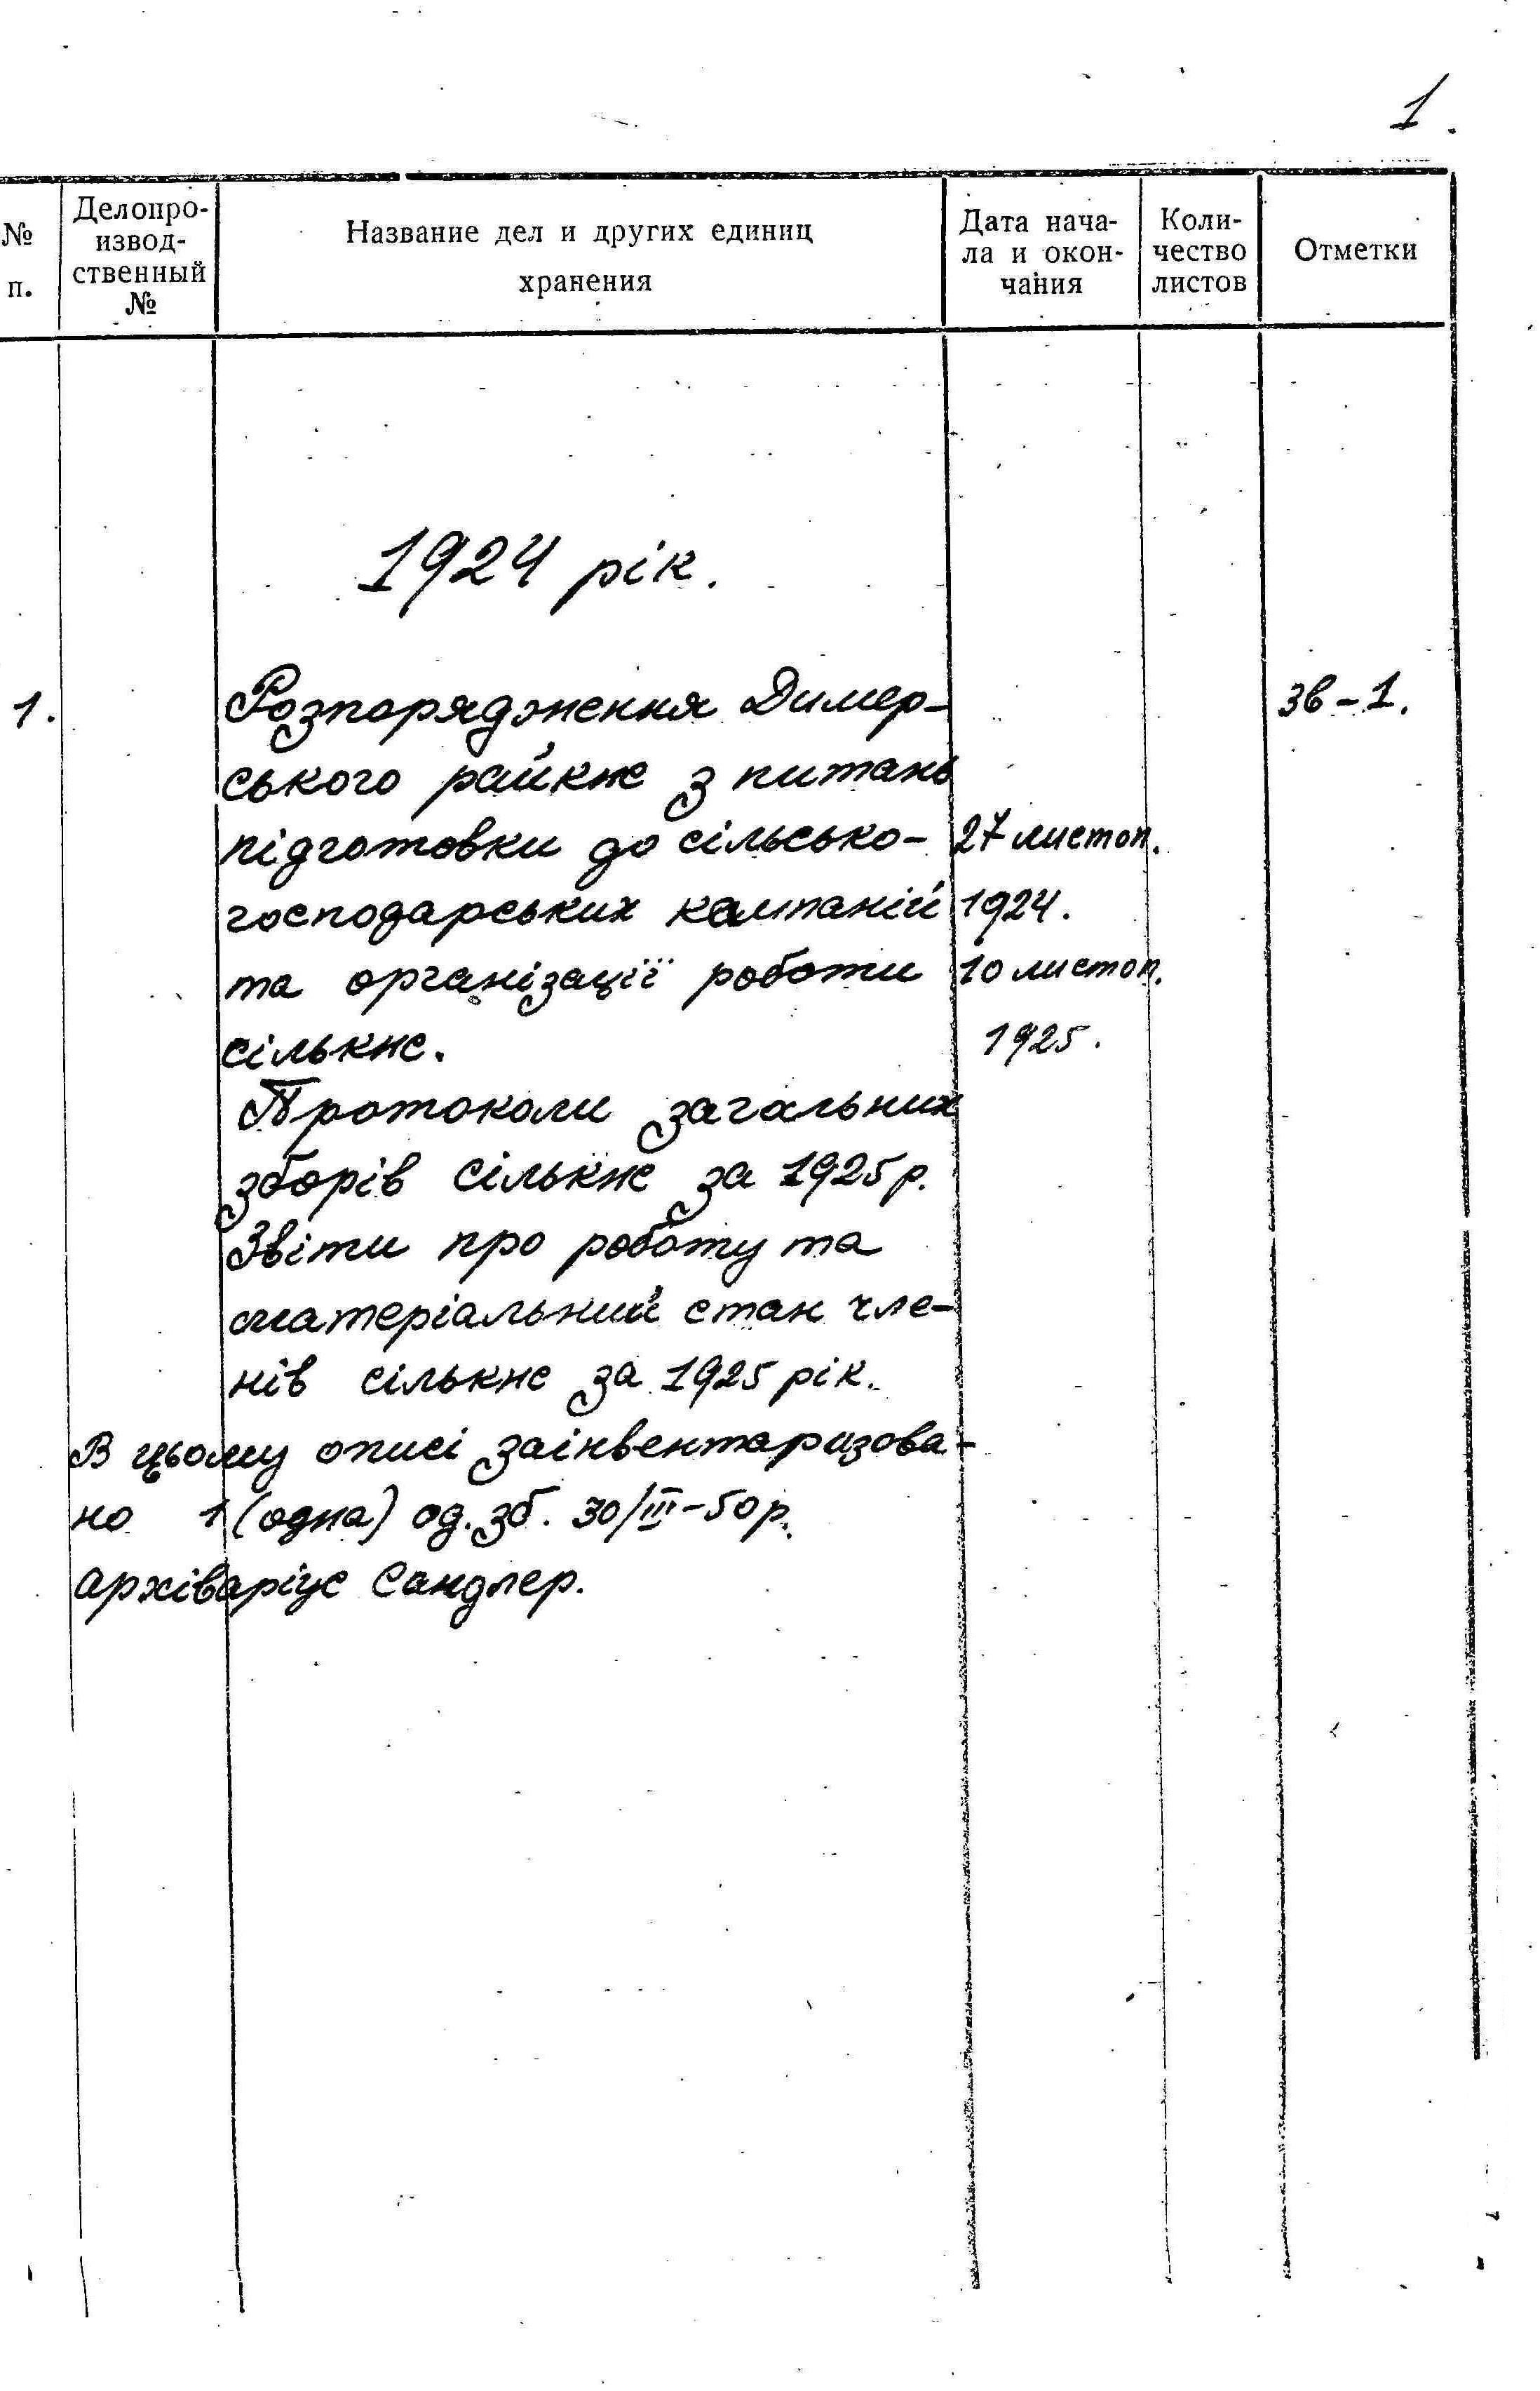 1.
№ п.
Делопро-
извод-
ственный
№
Название дел и других единиц
хранения
Дата нача-
ла и окон-
чания
Коли-
чество
листов
Отметки
1924 рік.
1. Розпорядження Димер- Зв-1.
ського райкнс з питань
підготовки до сільсько- 27 листоп.
господарських кампаній 1924.
та організації роботи 10 листоп.
сількнс. 1925.
Протоколи загальних
зборів сількнс за 1925р.
Звіти про роботу та
матеріальний стан чле-
нів сількнс за 1925 рік.
В цьому описі заінвентаризова-
но 1 (одна) од. зб. 30/III-50р.
архіваріус Сандлер.